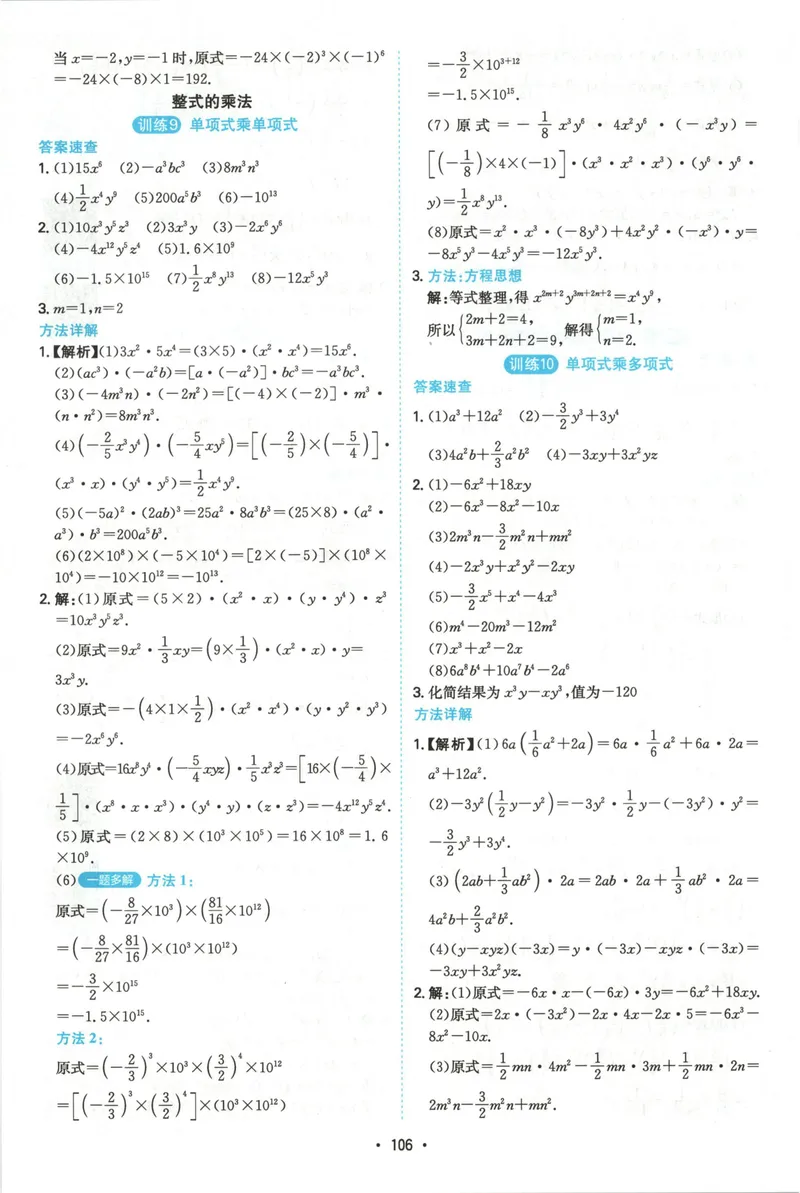 当 x=-2,y=-1 时,原式=-24×(-2)³×(-1)⁶
=-24×(-8)×1=192.
整式的乘法
训练9 单项式乘单项式
答案速查
1. (1)15x⁶ (2)-a³bc³ (3)8m³n³
(4)1/2x⁴y⁹ (5)200a⁵b³ (6)-10¹³
2. (1)10x³y⁵z³ (2)3x³y (3)-2x⁶y⁶
(4)-4x¹²y⁵z⁴ (5)1.6×10⁹
(6)-1.5×10¹⁵ (7)1/2x⁸y¹³ (8)-12x⁵y³
3. m=1,n=2
方法详解
1.【解析】(1)3x²·5x⁴=(3×5)·(x²·x⁴)=15x⁶.
(2)(ac³)·(-a²b)=[a·(-a²)]·bc³=-a³bc³.
(3)(-4m³n)·(-2n²)=[(-4)×(-2)]·m³·
(n·n²)=8m³n³.
(4)(-2/5x³y⁴)·(-5/4xy⁵)=[(-2/5)×(-5/4)]·
(x³·x)·(y⁴·y⁵)=1/2x⁴y⁹.
(5)(-5a)²·(2ab)³=25a²·8a³b³=(25×8)·(a²·
a³)·b³=200a⁵b³.
(6)(2×10⁸)×(-5×10⁴)=[2×(-5)]×(10⁸×
10⁴)=-10×10¹²=-10¹³.
2. 解:(1)原式=(5×2)·(x²·x)·(y·y⁴)·z³
=10x³y⁵z³.
(2)原式=9x²·1/3xy=(9×1/3)·(x²·x)·y=
3x³y.
(3)原式=-(4×1×1/2)·(x²·x⁴)·(y·y²·y³)
=-2x⁶y⁶.
(4)原式=16x⁸y⁴·(-5/4xyz)·1/5x³z³=[16×(-5/4)×
1/5]·(x⁸·x·x³)·(y⁴·y)·(z·z³)=-4x¹²y⁵z⁴.
(5)原式=(2×8)×(10³×10⁵)=16×10⁸=1.6
×10⁹.
(6)一题多解 方法1:
原式=(-8/27×10³)×(81/16×10¹²)
=(-8/27×81/16)×(10³×10¹²)
=-3/2×10¹⁵
=-1.5×10¹⁵.
方法2:
原式=(-2/3)³×10³×(3/2)⁴×10¹²
=[(-2/3)³×(3/2)⁴]×(10³×10¹²)
=-3/2×10³⁺¹²
=-1.5×10¹⁵.
(7)原式=-1/8x³y⁶·4x²y⁶·(-x³y)=
[(-1/8)×4×(-1)]·(x³·x²·x³)·(y⁶·y⁶·
y)=1/2x⁸y¹³.
(8)原式=x²·x³·(-8y³)+4x²y²·(-x³)·y=
-8x⁵y³-4x⁵y³=-12x⁵y³.
3. 方法:方程思想
解:等式整理,得 x²ᵐ⁺²y³ᵐ⁺²ⁿ⁺²=x⁴y⁹,
所以{2m+2=4, 3m+2n+2=9, 解得{m=1, n=2.
训练10 单项式乘多项式
答案速查
1. (1)a³+12a² (2)-3/2y³+3y⁴
(3)4a²b+2/3a²b² (4)-3xy+3x²yz
2. (1)-6x²+18xy
(2)-6x³-8x²-10x
(3)2m³n-3/2m²n+mn²
(4)-2x³y+x²y²-2xy
(5)-3/2x⁵+x⁴-4x³
(6)m⁴-20m³-12m²
(7)x³+x²-2x
(8)6a⁸b⁴+10a⁷b⁴-2a⁶
3. 化简结果为 x³y-xy³,值为-120
方法详解
1.【解析】(1)6a(1/6a²+2a)=6a·1/6a²+6a·2a=
a³+12a².
(2)-3y²(1/2y-y²)=-3y²·1/2y-(-3y²)·y²=
-3/2y³+3y⁴.
(3)(2ab+1/3ab²)·2a=2ab·2a+1/3ab²·2a=
4a²b+2/3a²b².
(4)(y-xyz)(-3x)=y·(-3x)-xyz·(-3x)=
-3xy+3x²yz.
2. 解:(1)原式=-6x·x-(-6x)·3y=-6x²+18xy.
(2)原式=2x·(-3x²)-2x·4x-2x·5=-6x³-
8x²-10x.
(3)原式=1/2mn·4m²-1/2mn·3m+1/2mn·2n=
2m³n-3/2m²n+mn².
·106·